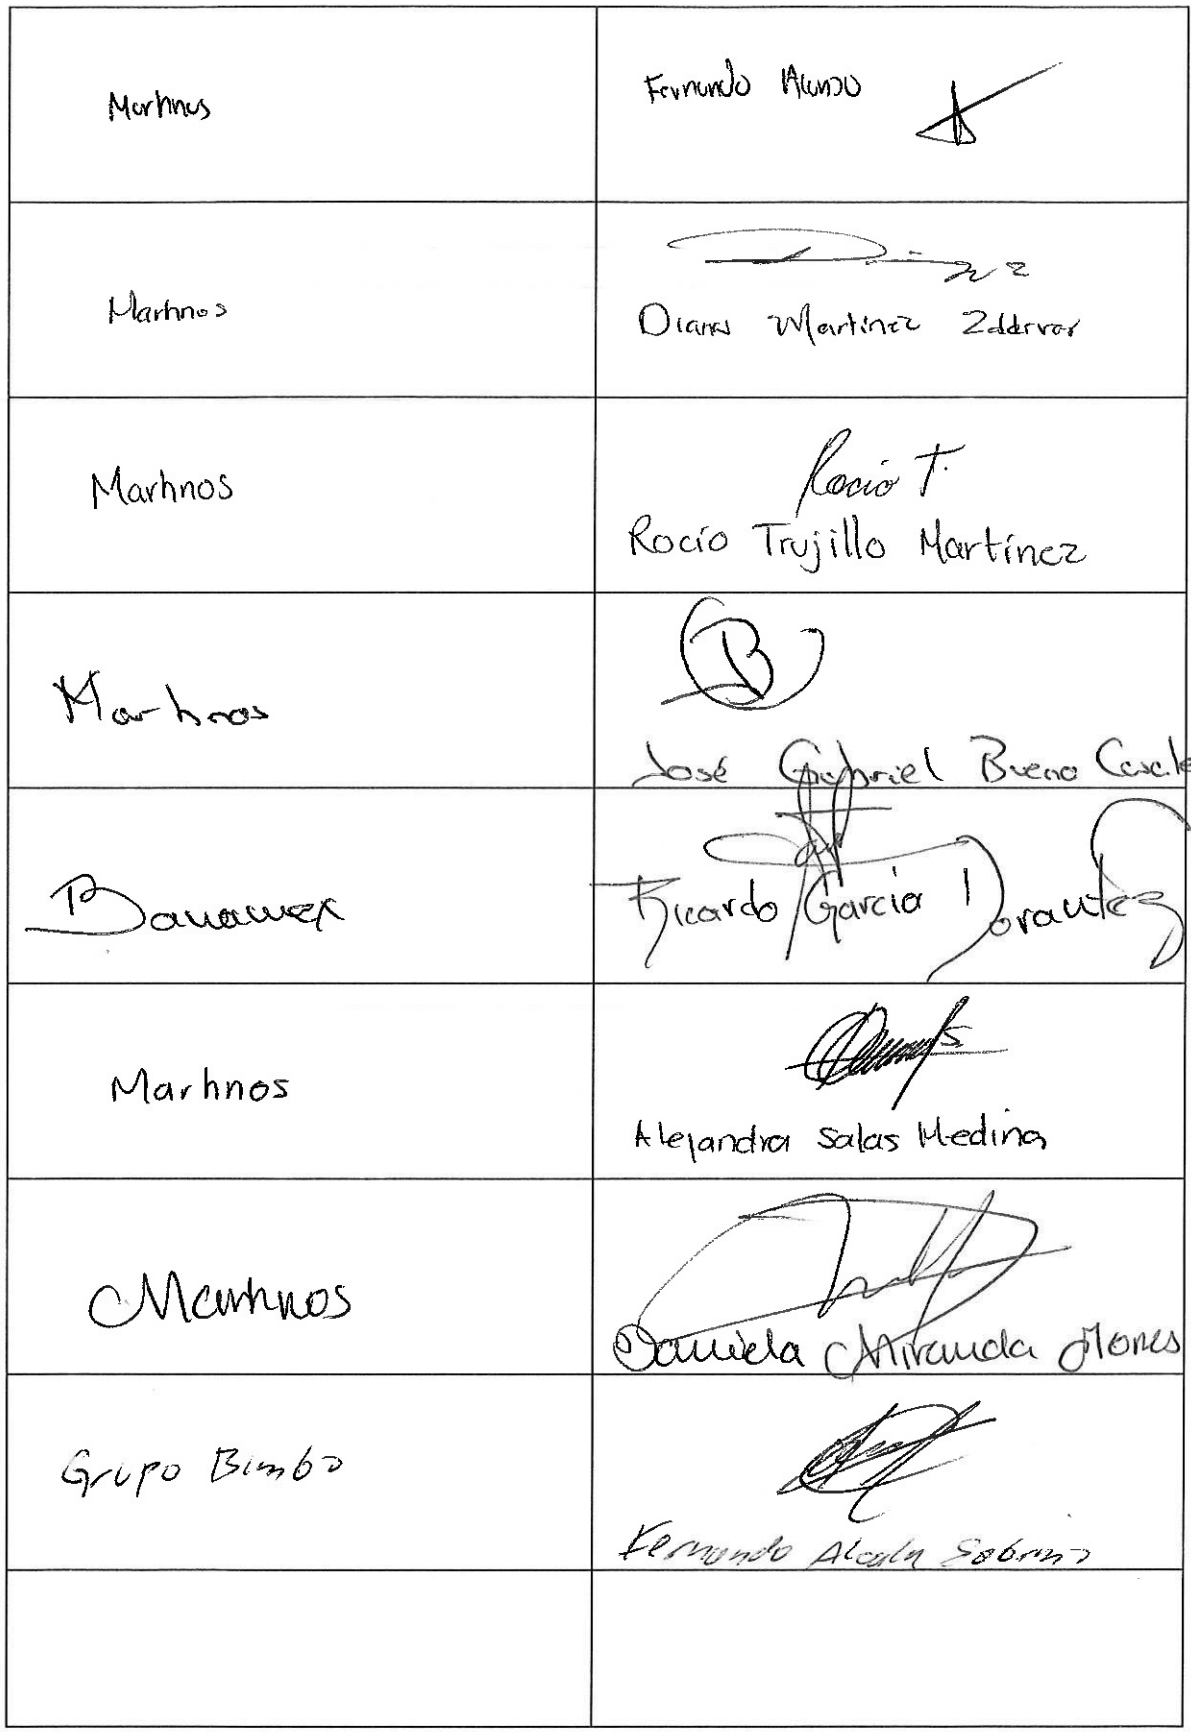 Marhnos
Fernando Alonso
Marhnos
Diana Martinez
Marhnos
Rocio T.
Rocío Trujillo Martínez
Marhnos
B
José Gabriel Bueno
Banamex
Ricardo García Dorantes
Marhnos
Alejandra Salas Medina
Marhnos
Daniela Miranda
Grupo Bimbo
Fernando Alcala Sobrino